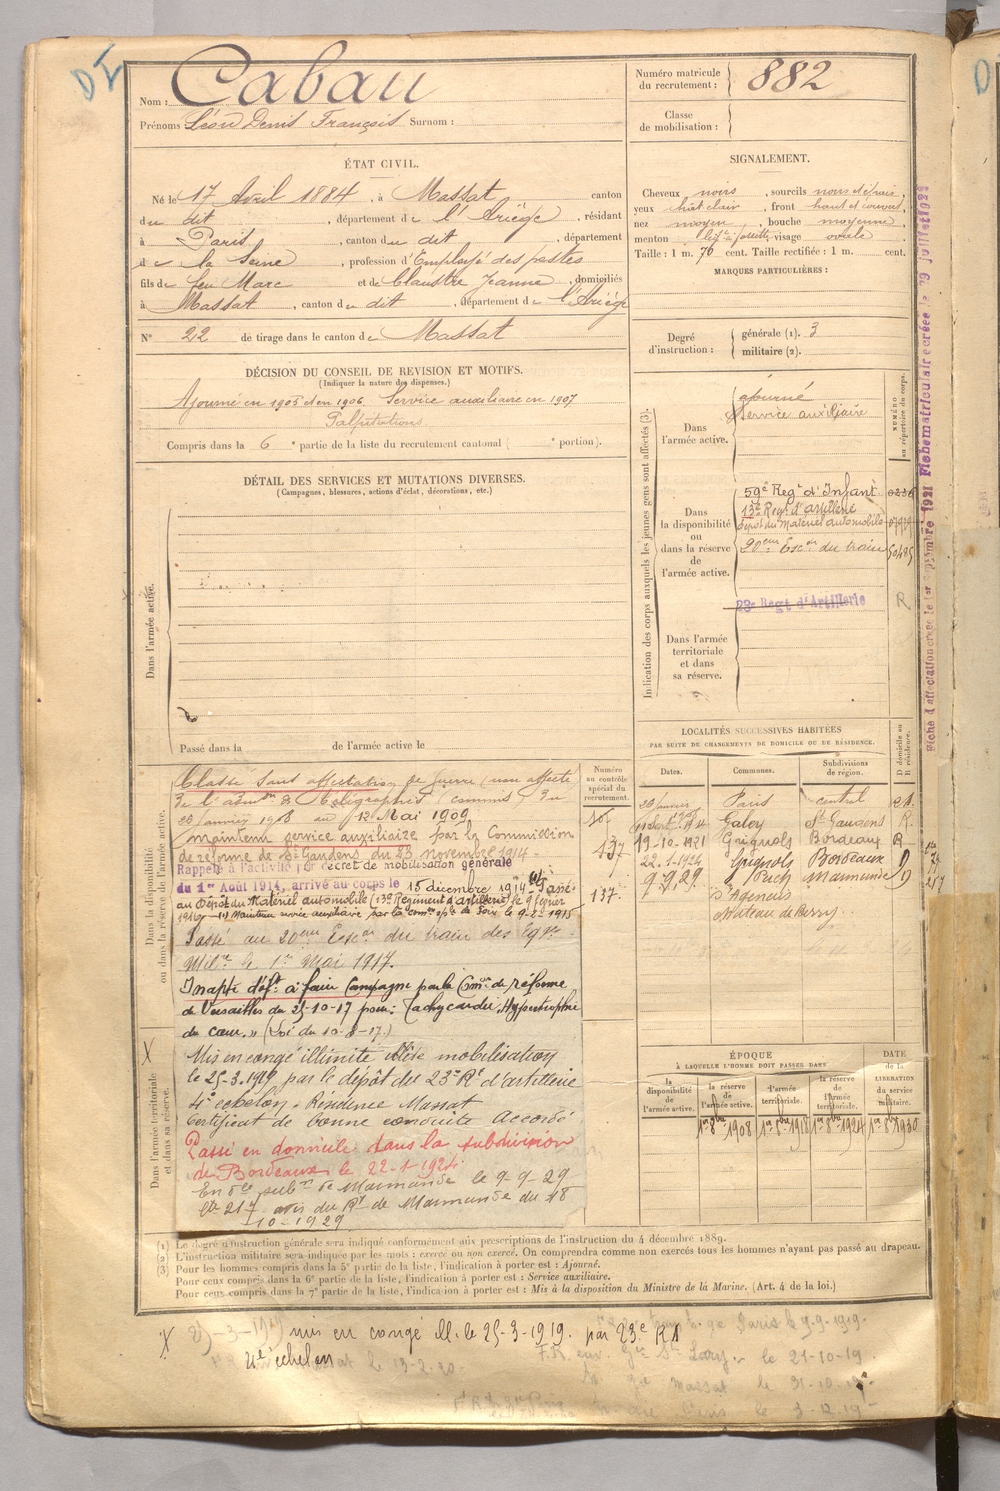 Nom : Cabau
Prénoms Léon Denis François Surnom :
Numéro matricule du recrutement : 882
Classe de mobilisation :
ÉTAT CIVIL.
Né le 17 Avril 1884, à Massat canton
du dit, département de l'Ariège, résidant
à Paris, canton du dit, département
de la Seine, profession d'Employé des postes
fils de feu Marc et de Claustre Jeanne, domiciliés
à Massat, canton du dit, département de l'Ariège
N° 22 de tirage dans le canton de Massat
SIGNALEMENT.
Cheveux noirs, sourcils noirs
yeux chât clair, front haut et couvert,
nez moyen, bouche moyenne
menton visage ovale
Taille : 1 m. 76 cent. Taille rectifiée : 1 m. cent.
MARQUES PARTICULIÈRES :
Degré d'instruction : générale (1). 3
militaire (2).
DÉCISION DU CONSEIL DE REVISION ET MOTIFS.
(Indiquer la nature des dispenses.)
Ajourné en 1905 et en 1906 Service auxiliaire en 1907
Palpitations
Compris dans la 6e partie de la liste du recrutement cantonal ( e portion).
DÉTAIL DES SERVICES ET MUTATIONS DIVERSES.
(Campagnes, blessures, actions d'éclat, décorations, etc.)
Dans l'armée active.
Passé dans la de l'armée active le
Indication des corps auxquels les jeunes gens sont affectés (3).
NUMÉRO au répertoire du corps.
Dans l'armée active.
ajourné
Service auxiliaire
Dans la disponibilité ou dans la réserve de l'armée active.
59e Regt d'Infant. 0236
13e Regt d'artillerie
Dépôt du Matériel automobile
20eme Escon du train
23e Regt d'Artillerie R
Dans l'armée territoriale et dans sa réserve.
Fiche d'affectation créée le 1er septembre 1921 Fiche matriculaire créée le 29 juillet 1921
Dans la disponibilité ou dans la réserve de l'armée active.
Classé sans affectation de guerre (non affecté
20 janvier 1908 au 12 Mai 1909
Maintenu service auxiliaire par la Commission
de réforme de St Gaudens du 23 novembre 1914.
Rappelé à l'activité Dr décret de mobilisation générale
du 1er Août 1914, arrivé au corps le 15 décembre 1914 (1) Passé
au Dépôt du Matériel automobile (13e Régiment d'artillerie) le 9 février
1916 (1) Maintenu service auxiliaire par la comon sple de Foix le 9-2-1915
Passé au 20eme Escon du train des Eqges
Milres le 1er Mai 1917.
Inapte déft à faire Campagne par la Comon de réforme
de Versailles du 25-10-17 pour : Tachycardie, Hypertrophie
du cœur. » (Loi du 10-8-17.)
Dans l'armée territoriale et dans sa réserve.
X
Mis en congé illimité de démobilisation
le 25-3-1919 par le dépôt du 23e Rt d'artillerie
4e échelon. Résidence Massat
Certificat de bonne conduite Accordé
Passé en domicile dans la subdivision
de Bordeaux le 22-1-1924
En dle subon de Marmande le 9-9-29
avis du Rt de Marmande du 18
10-1929
Numéro au contrôle spécial du recrutement.
137
137.
LOCALITÉS SUCCESSIVES HABITÉES
PAR SUITE DE CHANGEMENTS DE DOMICILE OU DE RÉSIDENCE.
D domicile ou R résidence.
Dates. Communes. Subdivisions de région.
Paris central
Galey St Gaudens R.
19-10-1921 Grignols Bordeaux R
22.1.1924 Grignols Bordeaux D
9-9.29. Puch Marmande D
d'Agenais
ÉPOQUE
À LAQUELLE L'HOMME DOIT PASSER DANS
DATE de la LIBÉRATION du service militaire.
la disponibilité de l'armée active. la réserve de l'armée active. l'armée territoriale. la réserve de l'armée territoriale.
1er 8bre 1908 1er 8bre 1918 1er 8bre 1924 1er 8bre 1930
(1) Le degré d'instruction générale sera indiqué conformément aux prescriptions de l'instruction du 4 décembre 1889.
(2) L'instruction militaire sera indiquée par les mots : exercé ou non exercé. On comprendra comme non exercés tous les hommes n'ayant pas passé au drapeau.
(3) Pour les hommes compris dans la 5e partie de la liste, l'indication à porter est : Ajourné.
Pour ceux compris dans la 6e partie de la liste, l'indication à porter est : Service auxiliaire.
Pour ceux compris dans la 7e partie de la liste, l'indication à porter est : Mis à la disposition du Ministre de la Marine. (Art. 4 de la loi.)
X mis en congé ill. le 25-3-1919. par 23e RA
4e échelon
Paris le 9-9-1919.
le 13-2-20.
le 21-10-19
Massat le 31-10-19